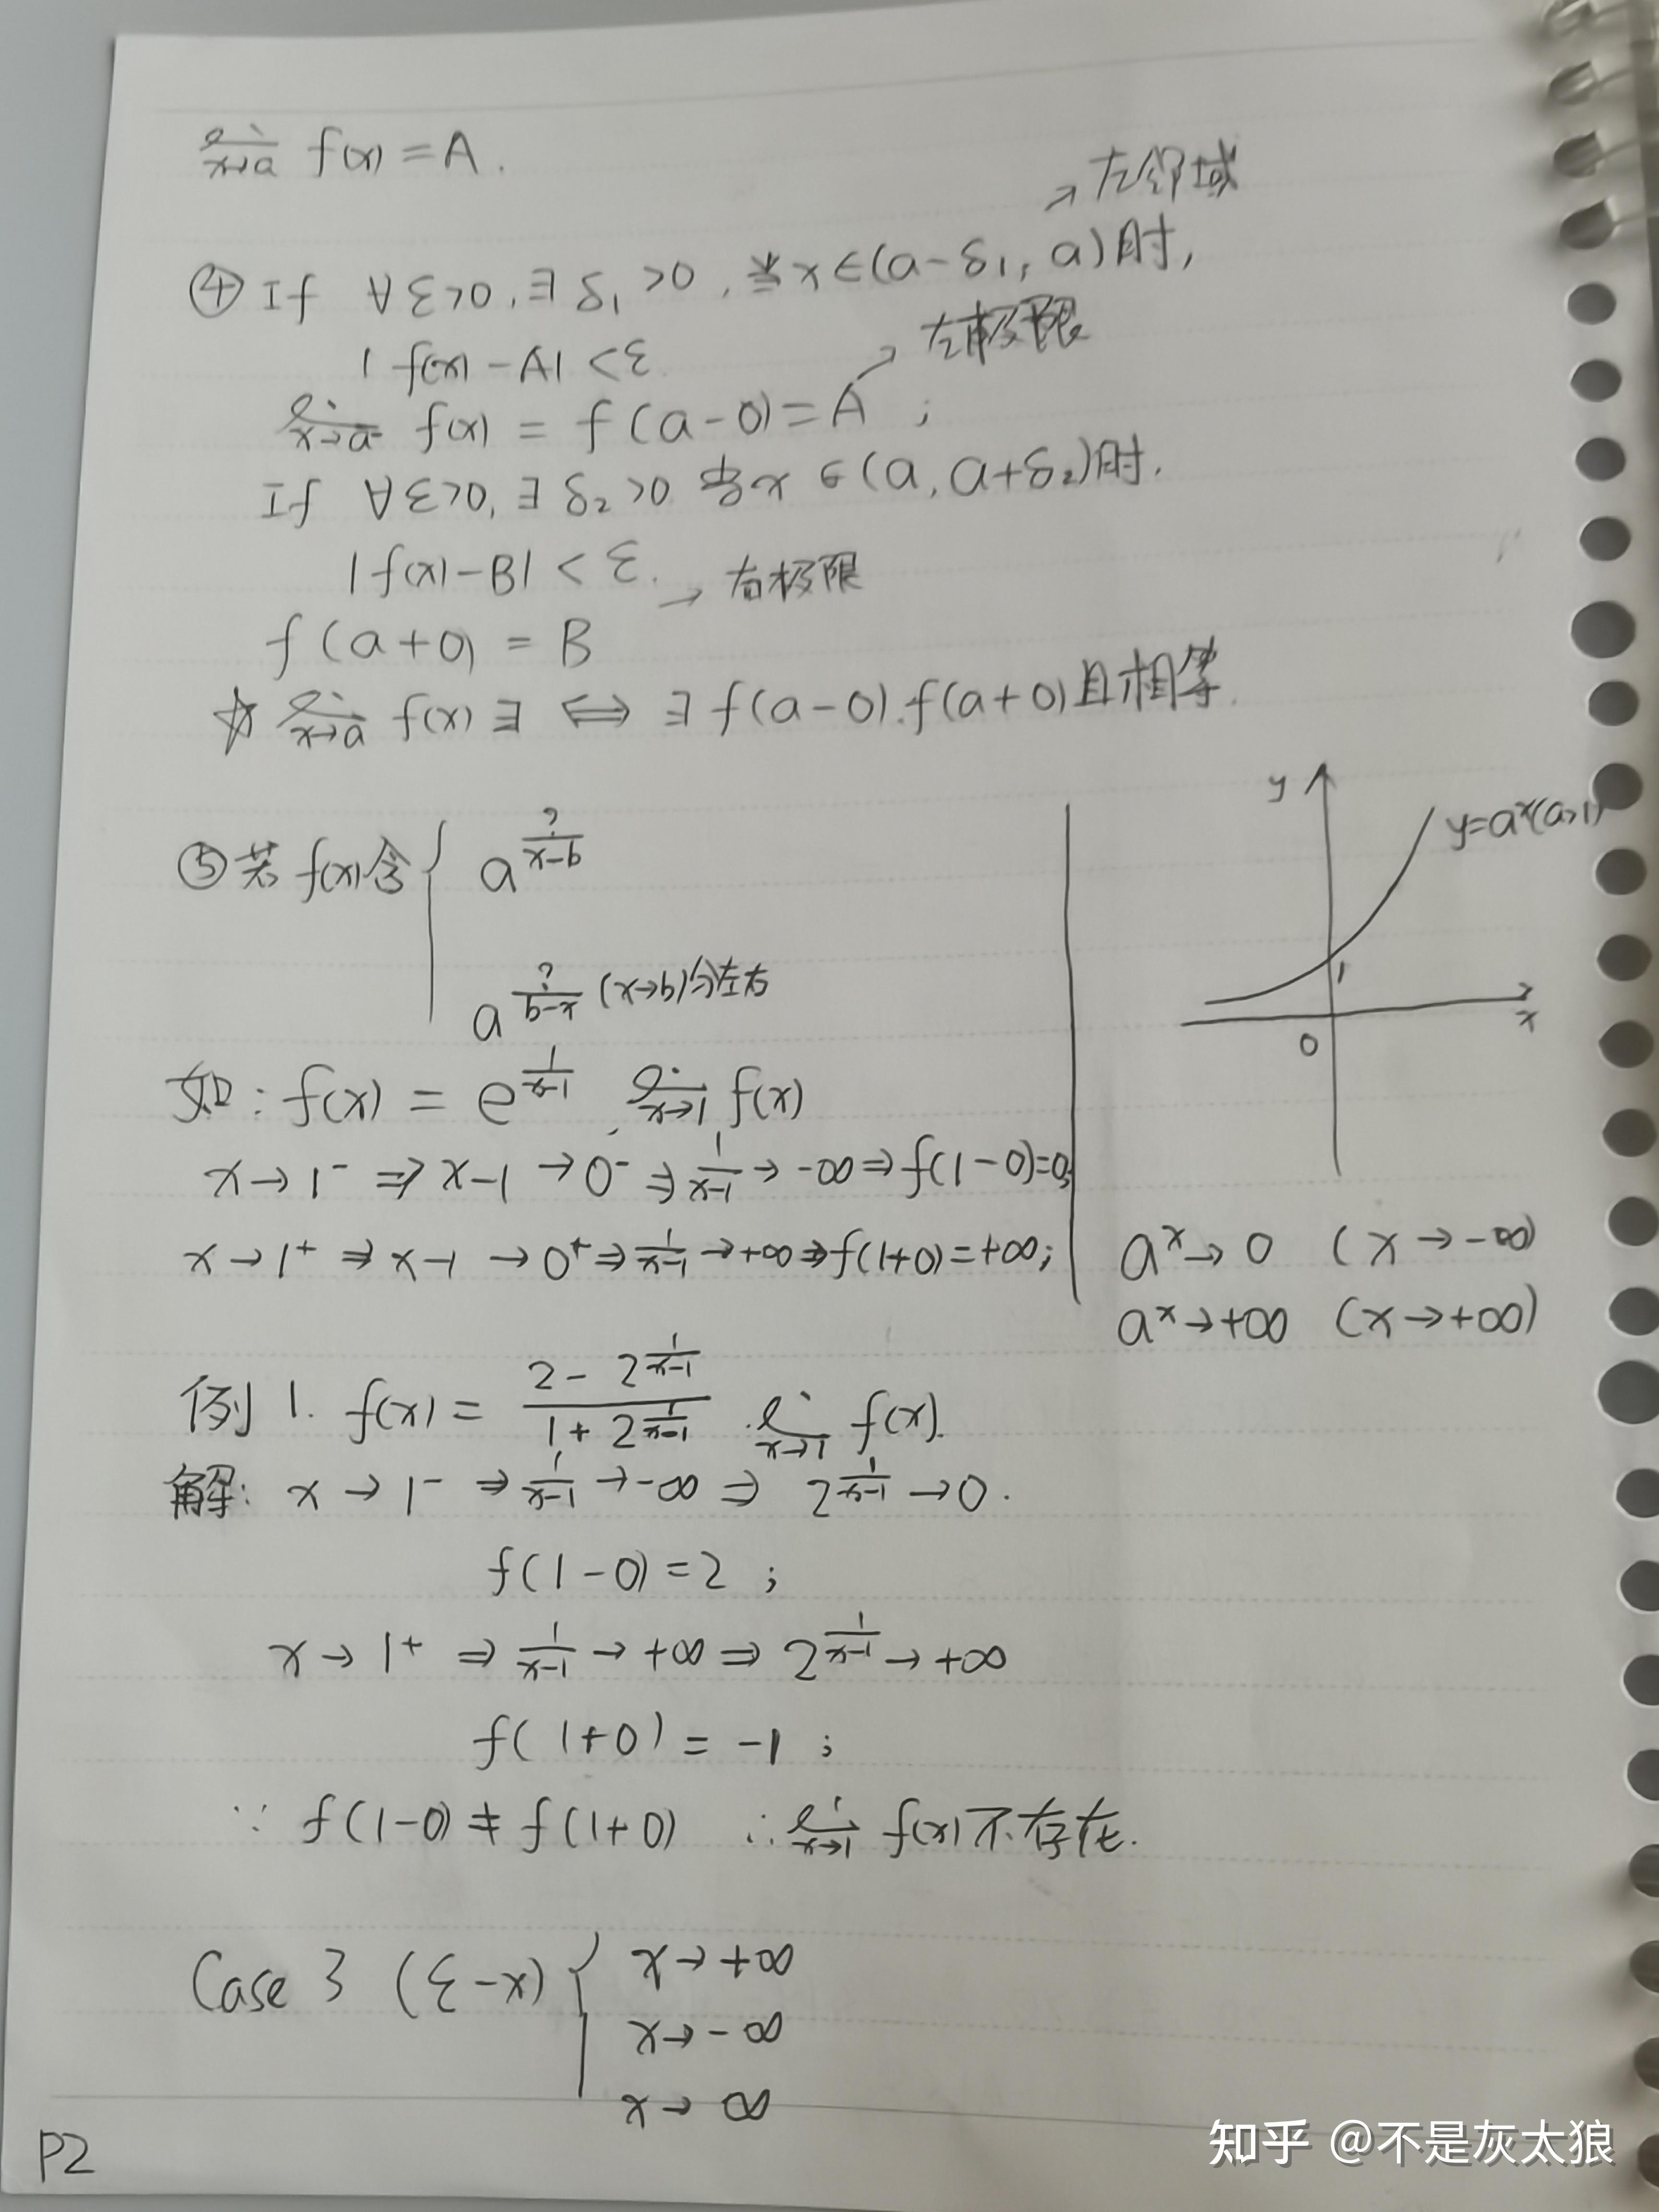 lim x→a f(x) = A.
→左邻域
④ If ∀ε>0, ∃δ₁>0, 当x∈(a-δ₁, a)时,
|f(x)-A|<ε
→左极限
lim x→a⁻ f(x) = f(a-0) = A ;
If ∀ε>0, ∃δ₂>0 当x∈(a, a+δ₂)时.
|f(x)-B|<ε.
→右极限
f(a+0) = B
☆ lim x→a f(x) ∃ ⟺ ∃ f(a-0), f(a+0)且相等.
⑤ 若 f(x)含 { a^(?/(x-b))
a^(?/(b-x)) (x→b)分左右
如: f(x) = e^(1/(x-1)), lim x→1 f(x)
x→1⁻ ⇒ x-1→0⁻ ⇒ 1/(x-1) → -∞ ⇒ f(1-0)=0;
x→1⁺ ⇒ x-1→0⁺ ⇒ 1/(x-1) → +∞ ⇒ f(1+0)=+∞;
y
y=a^x(a>1)
1
0
x
a^x→0 (x→-∞)
a^x→+∞ (x→+∞)
例1. f(x) = (2-2^(1/(x-1)))/(1+2^(1/(x-1))) . lim x→1 f(x).
解: x→1⁻ ⇒ 1/(x-1) → -∞ ⇒ 2^(1/(x-1)) → 0.
f(1-0)=2 ;
x→1⁺ ⇒ 1/(x-1) → +∞ ⇒ 2^(1/(x-1)) → +∞
f(1+0) = -1 ;
∵ f(1-0) ≠ f(1+0) ∴ lim x→1 f(x)不存在.
Case 3 (ε-X) { x→+∞
x→-∞
x→∞
P2
知乎 @不是灰太狼